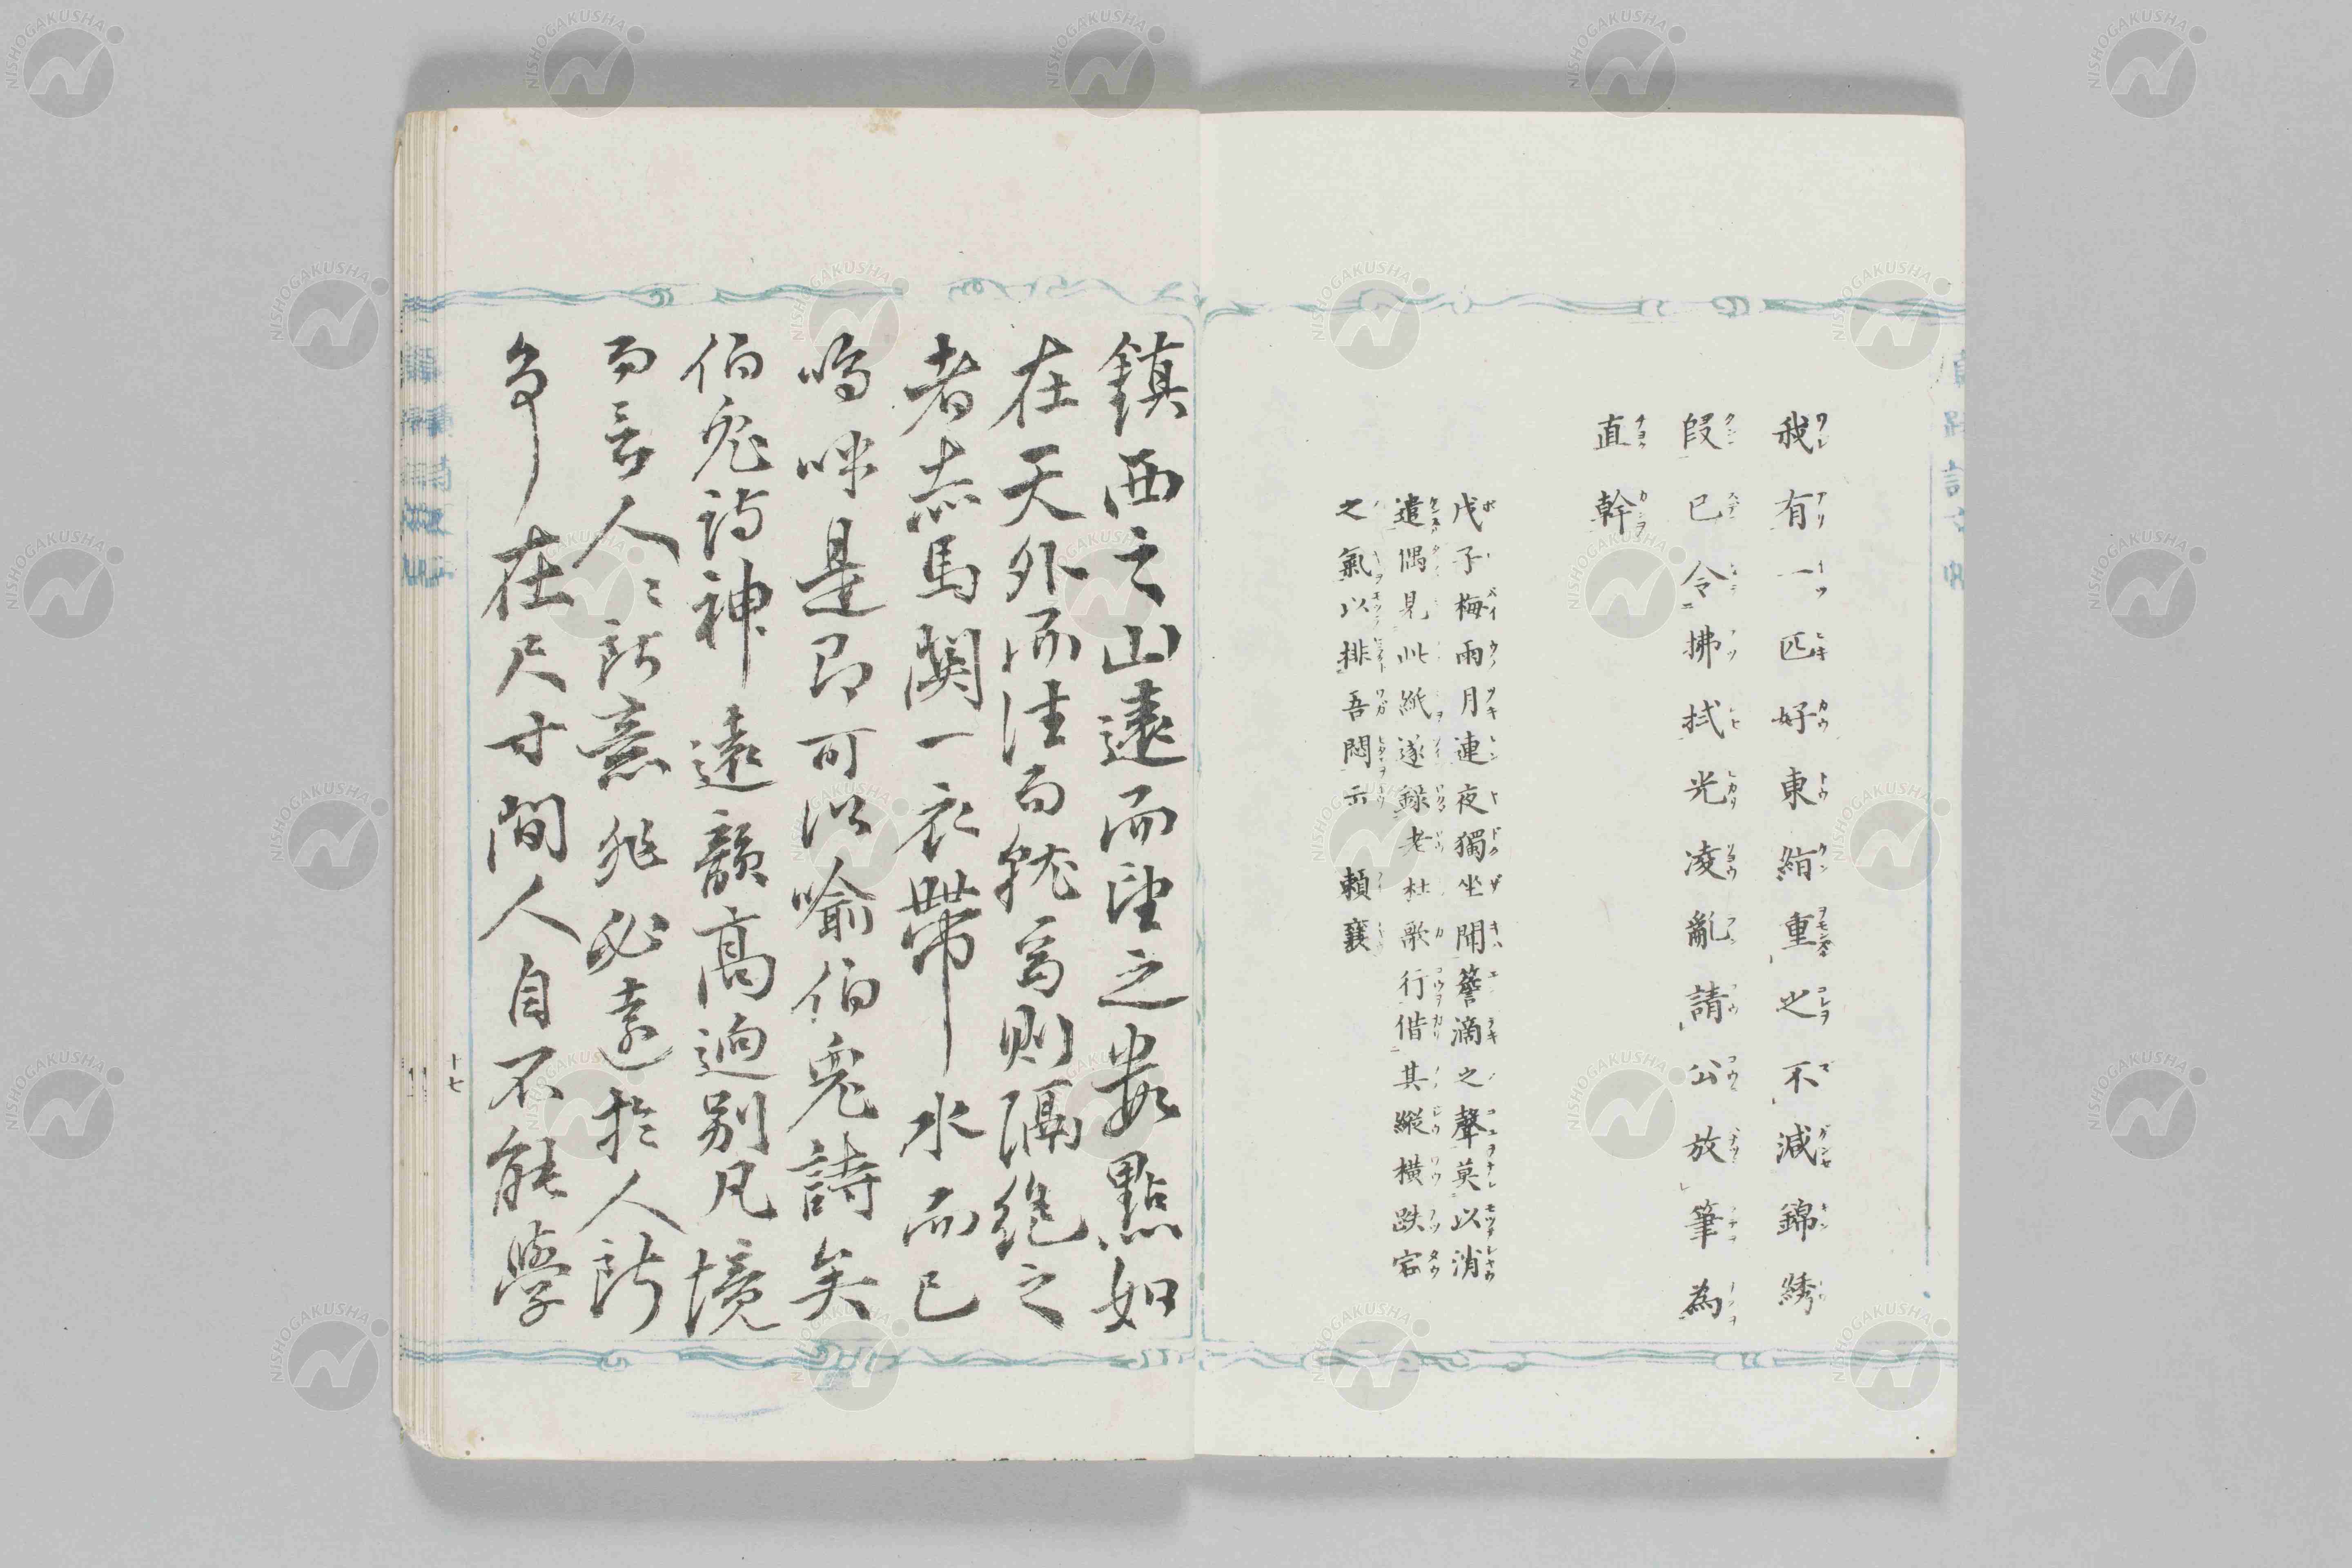 我有一匹好東絹重之不減錦綉
段已令拂拭光凌亂請公放筆為
直幹
戊子梅雨月連夜獨坐聞簷滴之聲莫以消
遣偶見此紙遂錄老杜歌行借其縱橫跌宕
之氣以排吾悶云 賴襄
鎮西之山遠而望之數點如
在天外而往而就焉則隔絶之
者赤馬關一衣帶水而已
嗚咪是即可以喻伯兎詩矣
伯兎詩神遠韻高迥別凡境
而言人〻所意非必遠於人所
爭在尺寸間人自不能學
十七
NISHOGAKUSHA